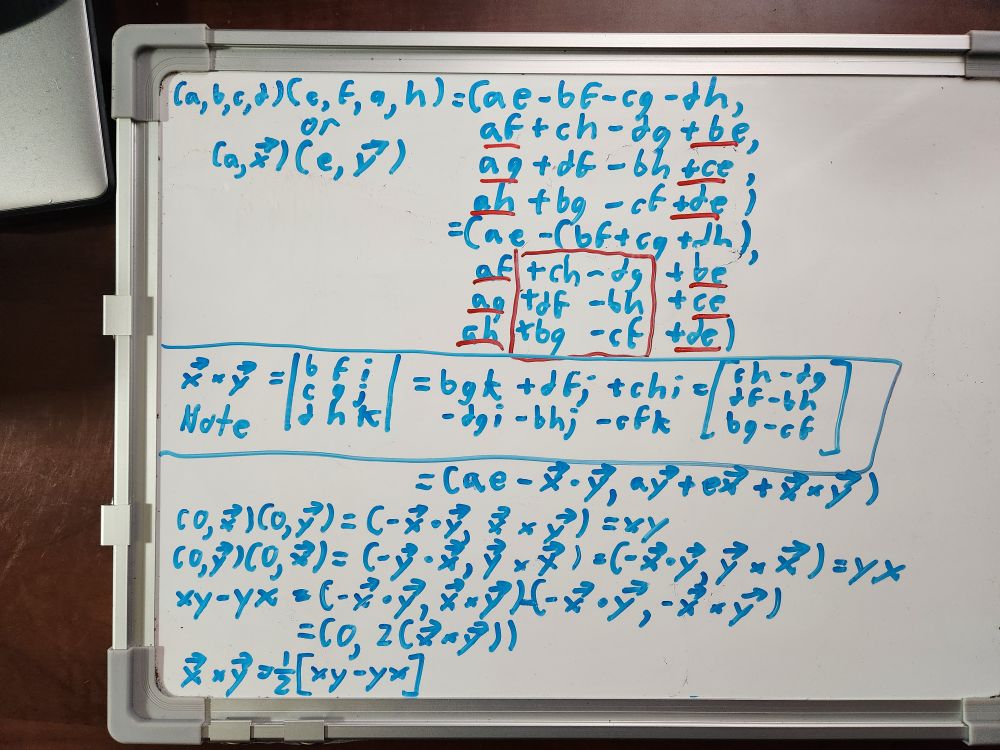 (a,b,c,d)(e,f,g,h)=(ae-bf-cg-dh,
or
af+ch-dg+be,
(a,x⃗)(e,y⃗)
ag+df-bh+ce,
ah+bg-cf+de)
=(ae-(bf+cg+dh),
af+ch-dg+be
ag+df-bh+ce
ah+bg-cf+de)
x⃗×y⃗ = |b f i| = bgk+dfj+chi = [ch-dg]
|c g j| [df-bh]
Note |d h k| -dgi-bhj-cfk [bg-cf]
=(ae-x⃗·y⃗, ay⃗+ex⃗+x⃗×y⃗)
(0,x⃗)(0,y⃗)=(-x⃗·y⃗, x⃗×y⃗)=xy
(0,y⃗)(0,x⃗)=(-y⃗·x⃗, y⃗×x⃗)=(-x⃗·y⃗, y⃗×x⃗)=yx
xy-yx=(-x⃗·y⃗, x⃗×y⃗)-(-x⃗·y⃗, -x⃗×y⃗)
=(0, 2(x⃗×y⃗))
x⃗×y⃗=½[xy-yx]